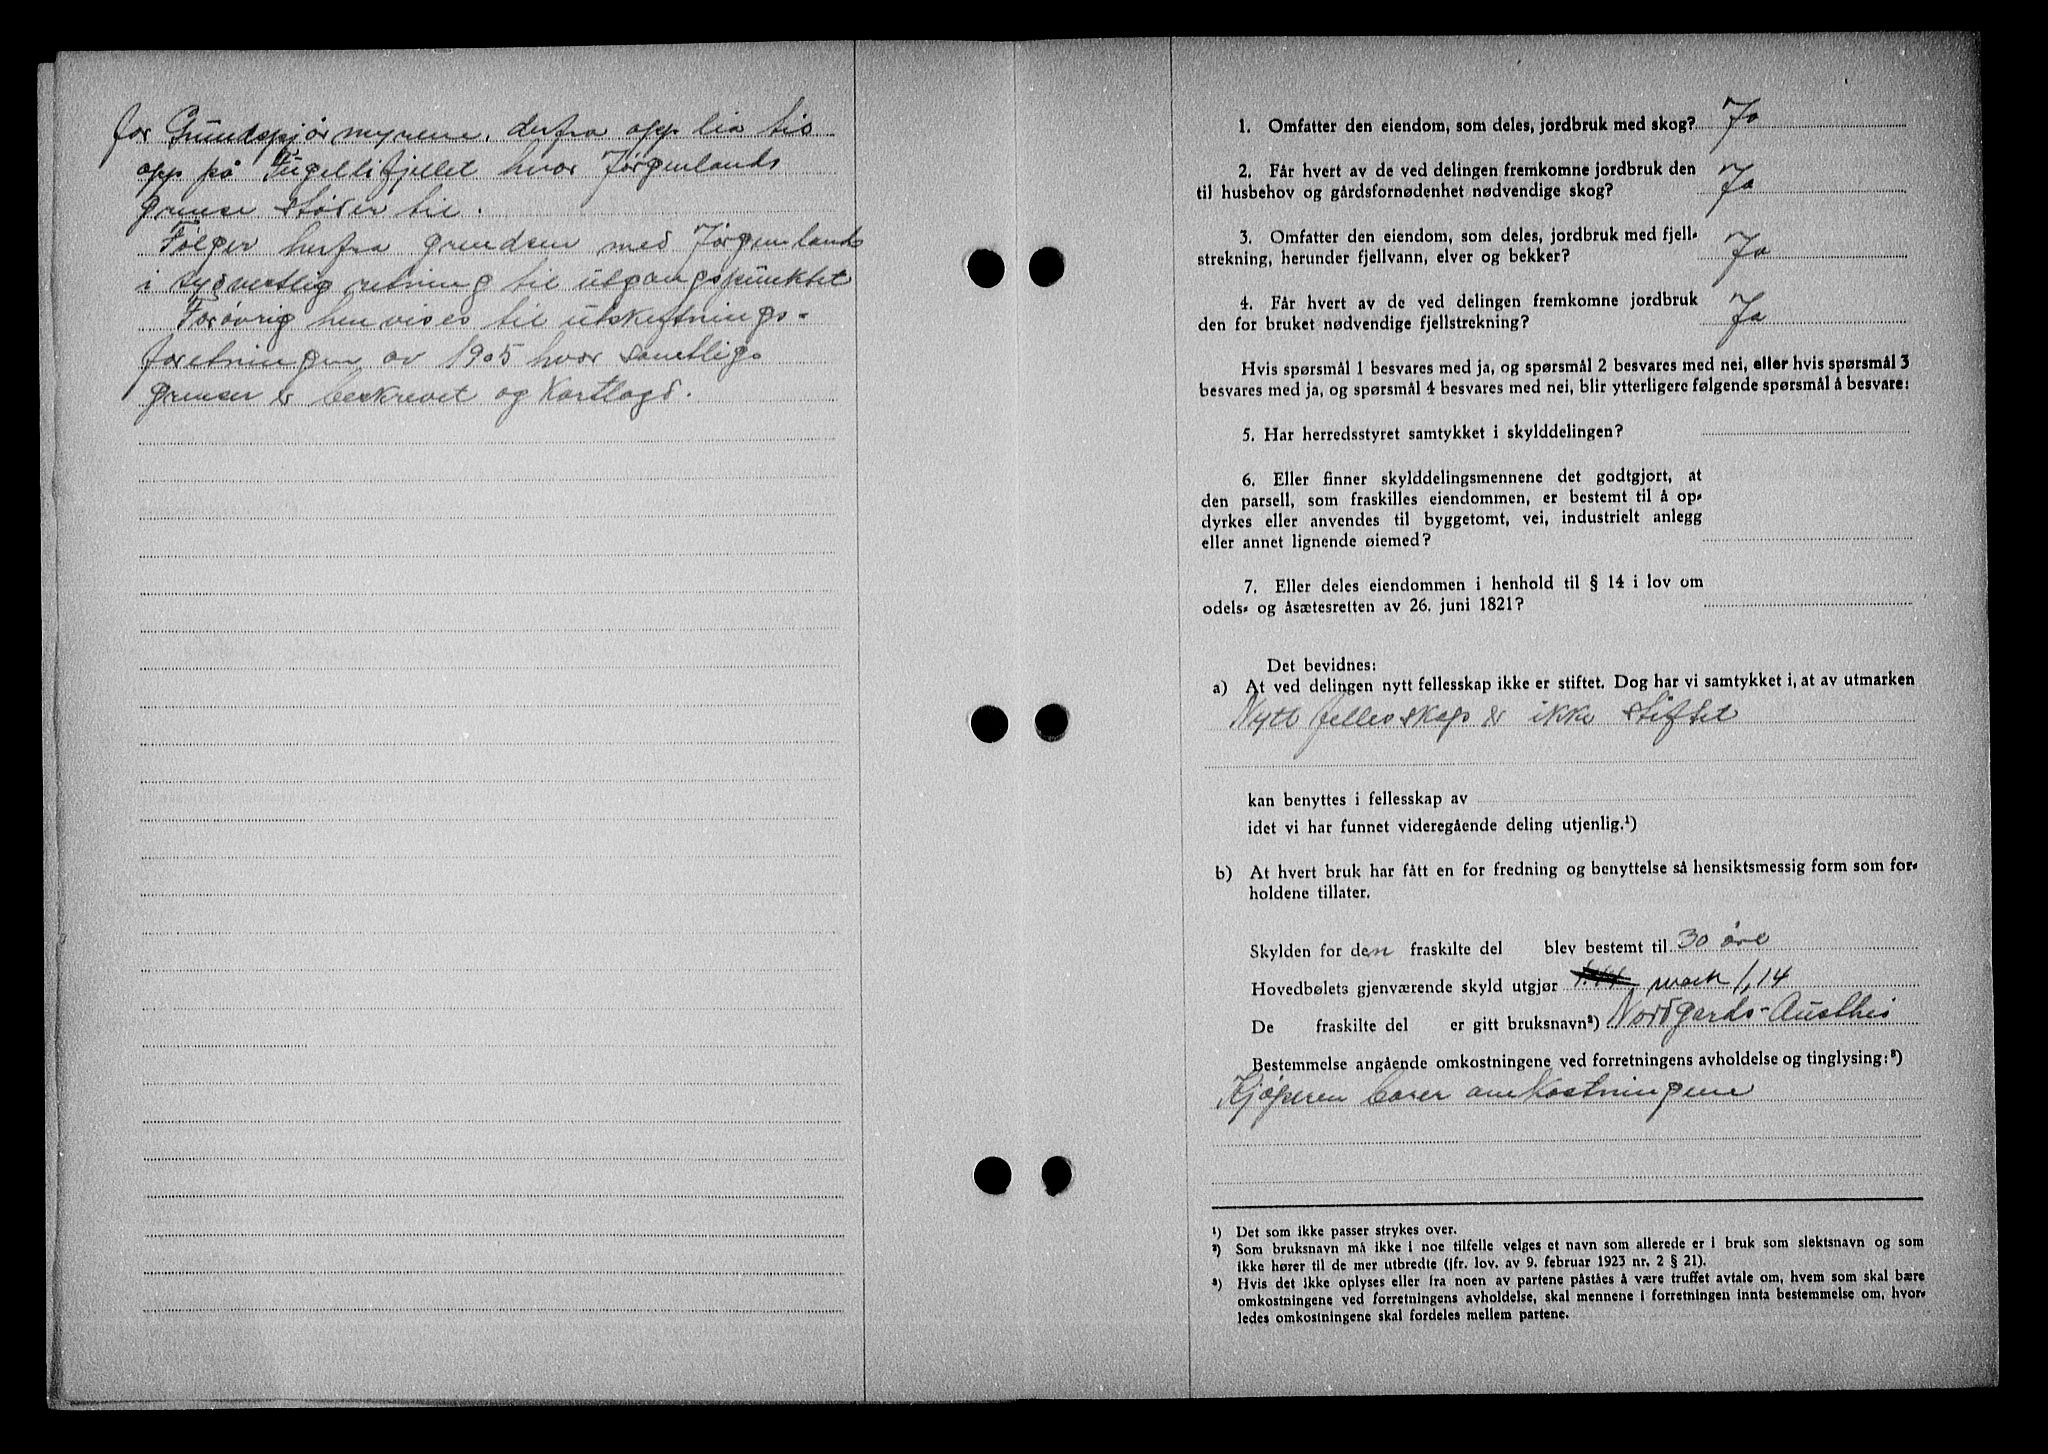 for Grundspjørmyrene, derfra opp lia til
opp på Fugellifjellet hvor Jørgenlands
grense støter til.
Følger herfra grendsen med Jørgenlands
i sydvestlig retning til utgangspunktet
Forøvrig henvises til utskiftnings-
foretningen av 1905 hvor samtlige
grenser er beskrevet og Kartlagd.
1. Omfatter den eiendom, som deles, jordbruk med skog? Ja
2. Får hvert av de ved delingen fremkomne jordbruk den
til husbehov og gårdsfornødenhet nødvendige skog? Ja
3. Omfatter den eiendom, som deles, jordbruk med fjell-
strekning, herunder fjellvann, elver og bekker? Ja
4. Får hvert av de ved delingen fremkomne jordbruk
den for bruket nødvendige fjellstrekning? Ja
Hvis spørsmål 1 besvares med ja, og spørsmål 2 besvares med nei, eller hvis spørsmål 3
besvares med ja, og spørsmål 4 besvares med nei, blir ytterligere følgende spørsmål å besvare:
5. Har herredsstyret samtykket i skylddelingen?
6. Eller finner skylddelingsmennene det godtgjort, at
den parsell, som fraskilles eiendommen, er bestemt til å op-
dyrkes eller anvendes til byggetomt, vei, industrielt anlegg
eller annet lignende øiemed?
7. Eller deles eiendommen i henhold til § 14 i lov om
odels- og åsætesretten av 26. juni 1821?
Det bevidnes:
a) At ved delingen nytt fellesskap ikke er stiftet. Dog har vi samtykket i, at av utmarken
Nytt fellesskap er ikke stiftet
kan benyttes i fellesskap av
idet vi har funnet videregående deling utjenlig.¹)
b) At hvert bruk har fått en for fredning og benyttelse så hensiktsmessig form som for-
holdene tillater.
Skylden for den fraskilte del blev bestemt til 30 øre
Hovedbølets gjenværende skyld utgjør mark 1,14
De fraskilte del er gitt bruksnavn²) Nordgards-Austhei
Bestemmelse angående omkostningene ved forretningens avholdelse og tinglysing:³)
Kjøperen bærer omkostningene
¹) Det som ikke passer strykes over.
²) Som bruksnavn må ikke i noe tilfelle velges et navn som allerede er i bruk som slektsnavn og som
ikke hører til de mer utbredte (jfr. lov. av 9. februar 1923 nr. 2 § 21).
³) Hvis det ikke oplyses eller fra noen av partene påståes å være truffet avtale om, hvem som skal bære
omkostningene ved forretningens avholdelse, skal mennene i forretningen innta bestemmelse om, hvor-
ledes omkostningene skal fordeles mellem partene.